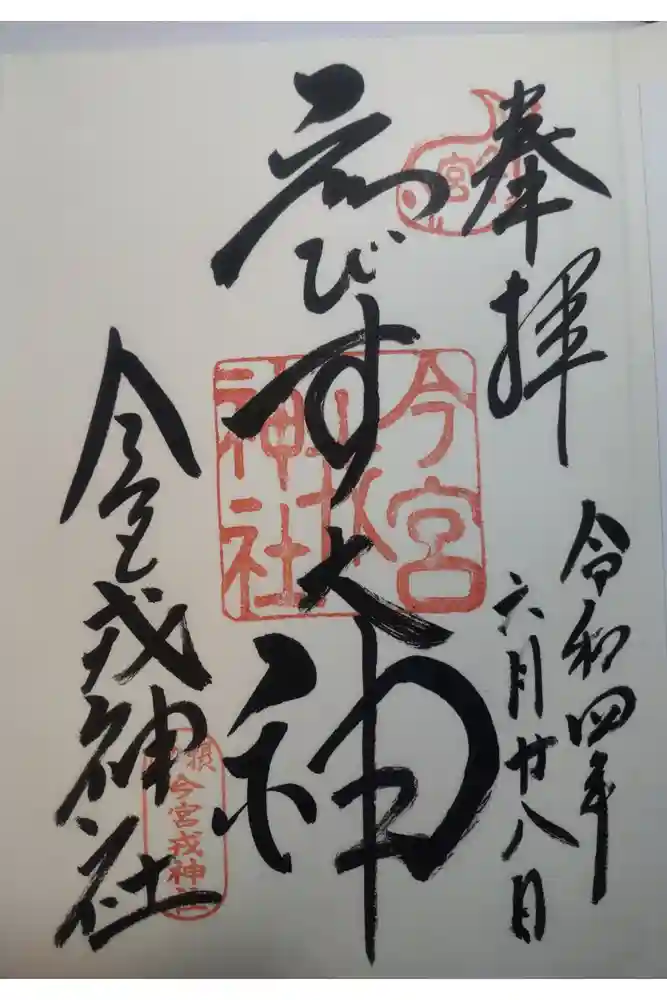 奉拝
令和四年
六月廿八日
ゑびす大神
今宮戎神社
今宮
神社
摂
今宮戎神社